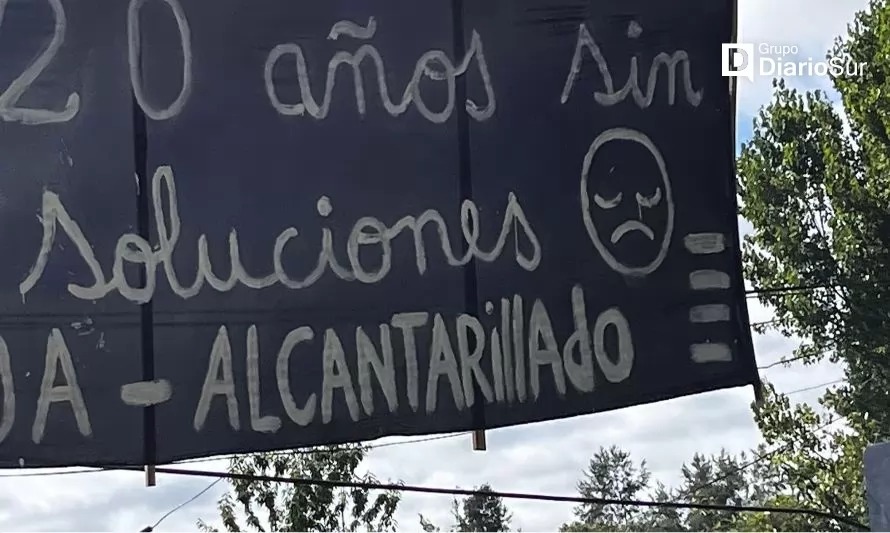 20 años sin
soluciones
DA - ALCANTARillAdo
Grupo
DiarioSur